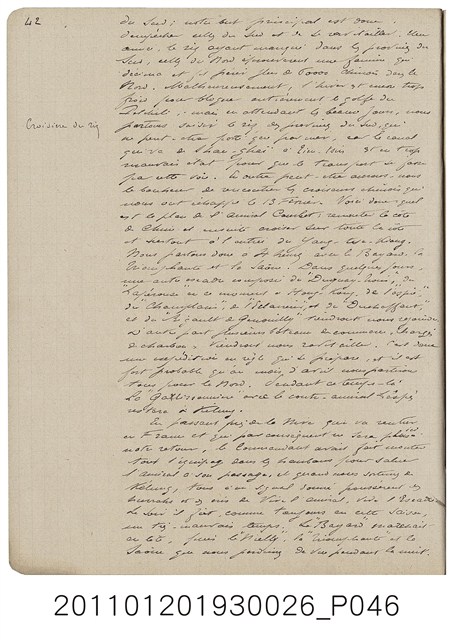 42
du Sud; notre but principal est donc
d'empêcher celles du Sud et de le ravitailler. Une
année, le riz ayant manqué dans les provinces du
Sud, celles du Nord éprouvèrent une famine qui
décima et fit périr plus de 60000 chinois dans le
Nord. Malheureusement, l'hiver est encore trop
froid pour bloquer entièrement le golfe du
Petchili; mais en attendant les beaux jours, nous
pourrons saisir le riz des provinces du Sud, qui
ne peut être porté que par mer, car le canal
Croisière du riz
qui va de Shang-haï à Tien-tsin est en trop
mauvais état pour que le transport se fasse
par cette voie. En outre peut-être aurons-nous
le bonheur de rencontrer les croiseurs chinois qui
nous ont échappé le 13 Février. Voici donc quel
est le plan de l'amiral Courbet: remonter la côte
de Chine et ensuite croiser sur toute la côte
et surtout à l'entrée du Yang-tse-Kiang.
Nous partons donc à 4 heures avec le Bayard, la
Triomphante et la Saône. Dans quelques jours,
une autre escadre composée du Duguay-Trouin, du
Lapérouse en ce moment à Hong-Kong, de l'Aspic
du Champlain, de l'Éclaireur, et du Duchaffaut,
et du Rigault de Genouilly viendront nous rejoindre.
D'autre part plusieurs bateaux de commerce, chargés
de charbon, viendront nous ravitailler. C'est donc
une expédition en règle qui se prépare, et il est
fort probable qu'au mois d'avril nous partirons
tous pour le Nord. Pendant ce temps-là
La Galissonnière avec le contre-amiral Lespès
restera à Kélung.
En passant près de la Nive qui va rentrer
en France et qui par conséquent ne sera plus là à
notre retour, le Commandant avait fait monter
tout l'équipage dans les haubans pour saluer
l'amiral à son passage, et quand nous sortîmes de
Kélung, tous à un signal donné poussèrent des
hurrahs et des cris de Vive l'amiral, Vive l'Escadre
Le soir il fait, comme toujours en cette saison,
un très mauvais temps. Le Bayard marchait
en tête, puis le Nielly, la Triomphante et la
Saône que nous perdîmes de vue pendant la nuit.
201101201930026_P046